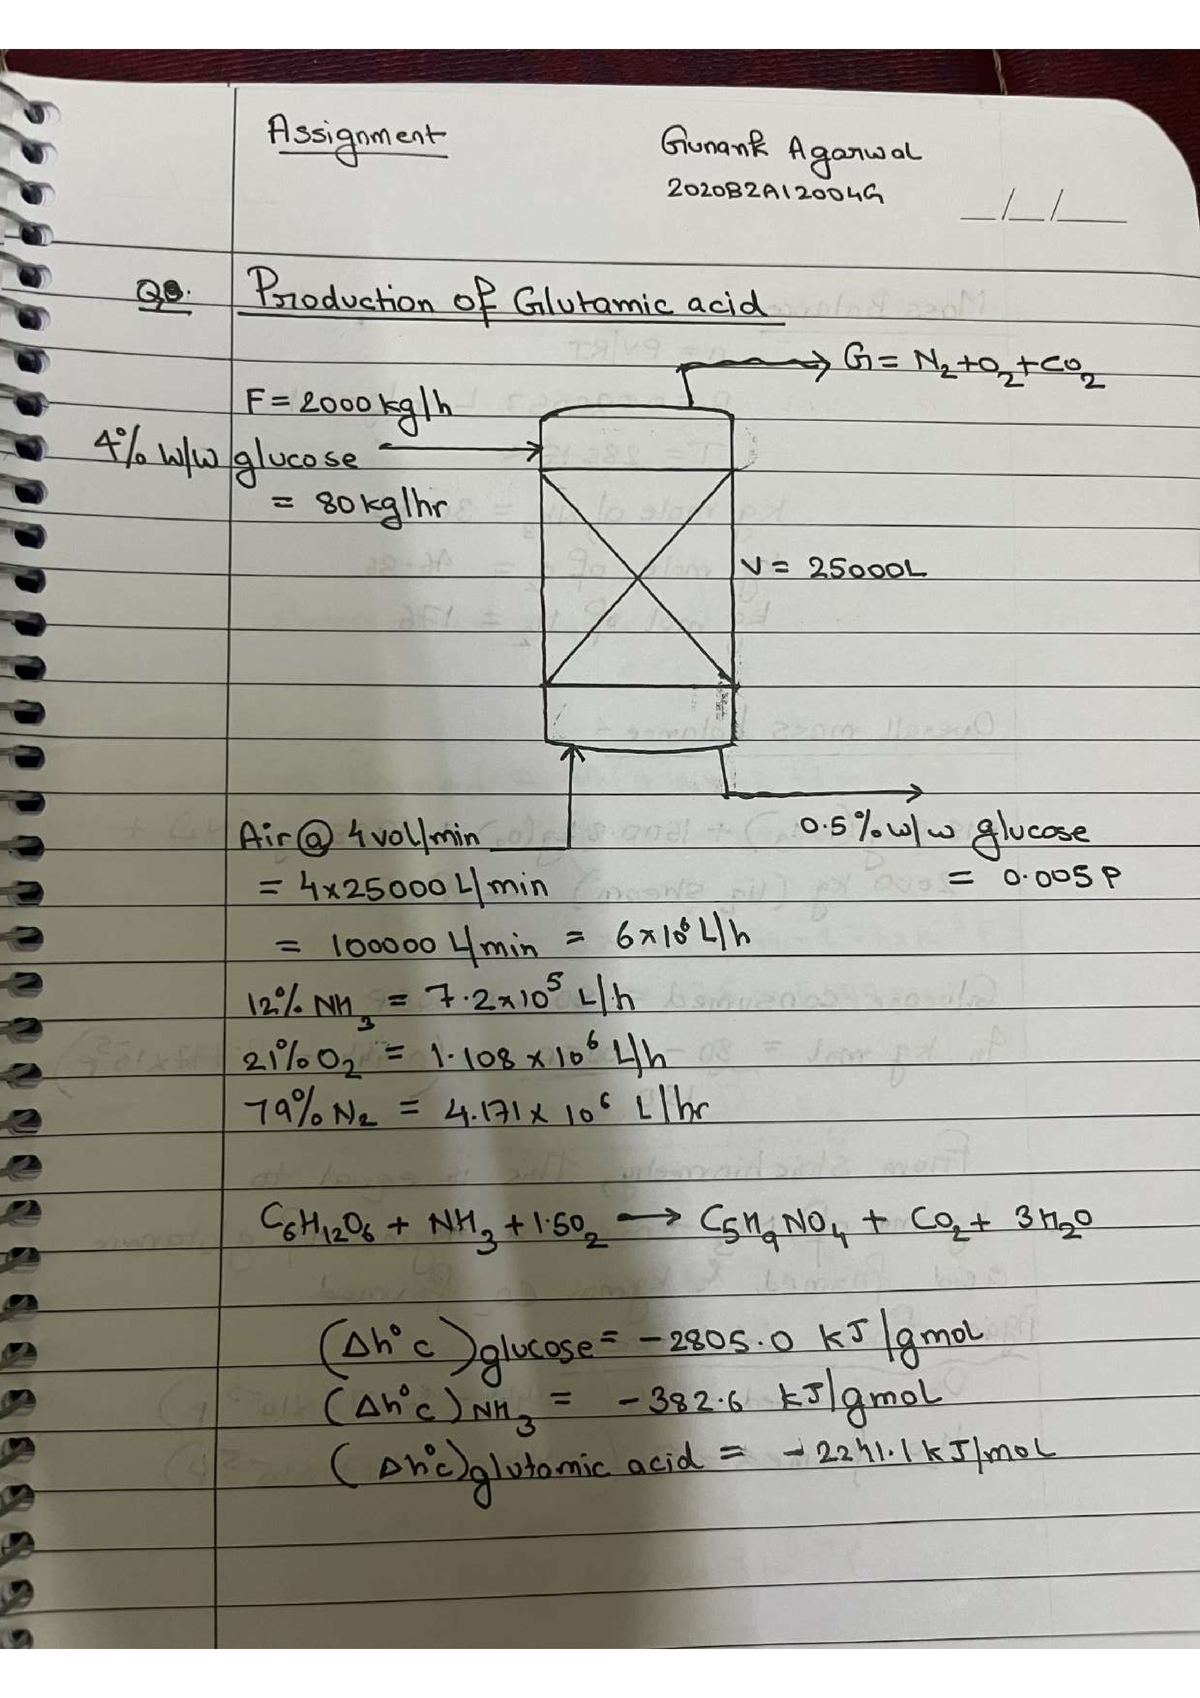 Assignment
Gunank Agarwal
2020B2A12004G
_/_/__
Q8. Production of Glutamic acid
G = N₂+O₂+CO₂
F = 2000 kg/h
4% w/w glucose
= 80 kg/hr
V = 25000L
Air @ 4 vol/min
0.5% w/w glucose
= 4x25000 L/min
= 0.005 P
= 100000 L/min = 6x10⁶ L/h
12% NH₃ = 7.2x10⁵ L/h
21% O₂ = 1.108 x10⁶ L/h
79% N₂ = 4.171 x 10⁶ L/hr
C₆H₁₂O₆ + NH₃ + 1.5O₂ → C₅H₉NO₄ + CO₂ + 3H₂O
(Δh°c)glucose = -2805.0 kJ/gmol
(Δh°c)NH₃ = -382.6 kJ/gmol
(Δh°c)glutamic acid = -2241.1 kJ/mol